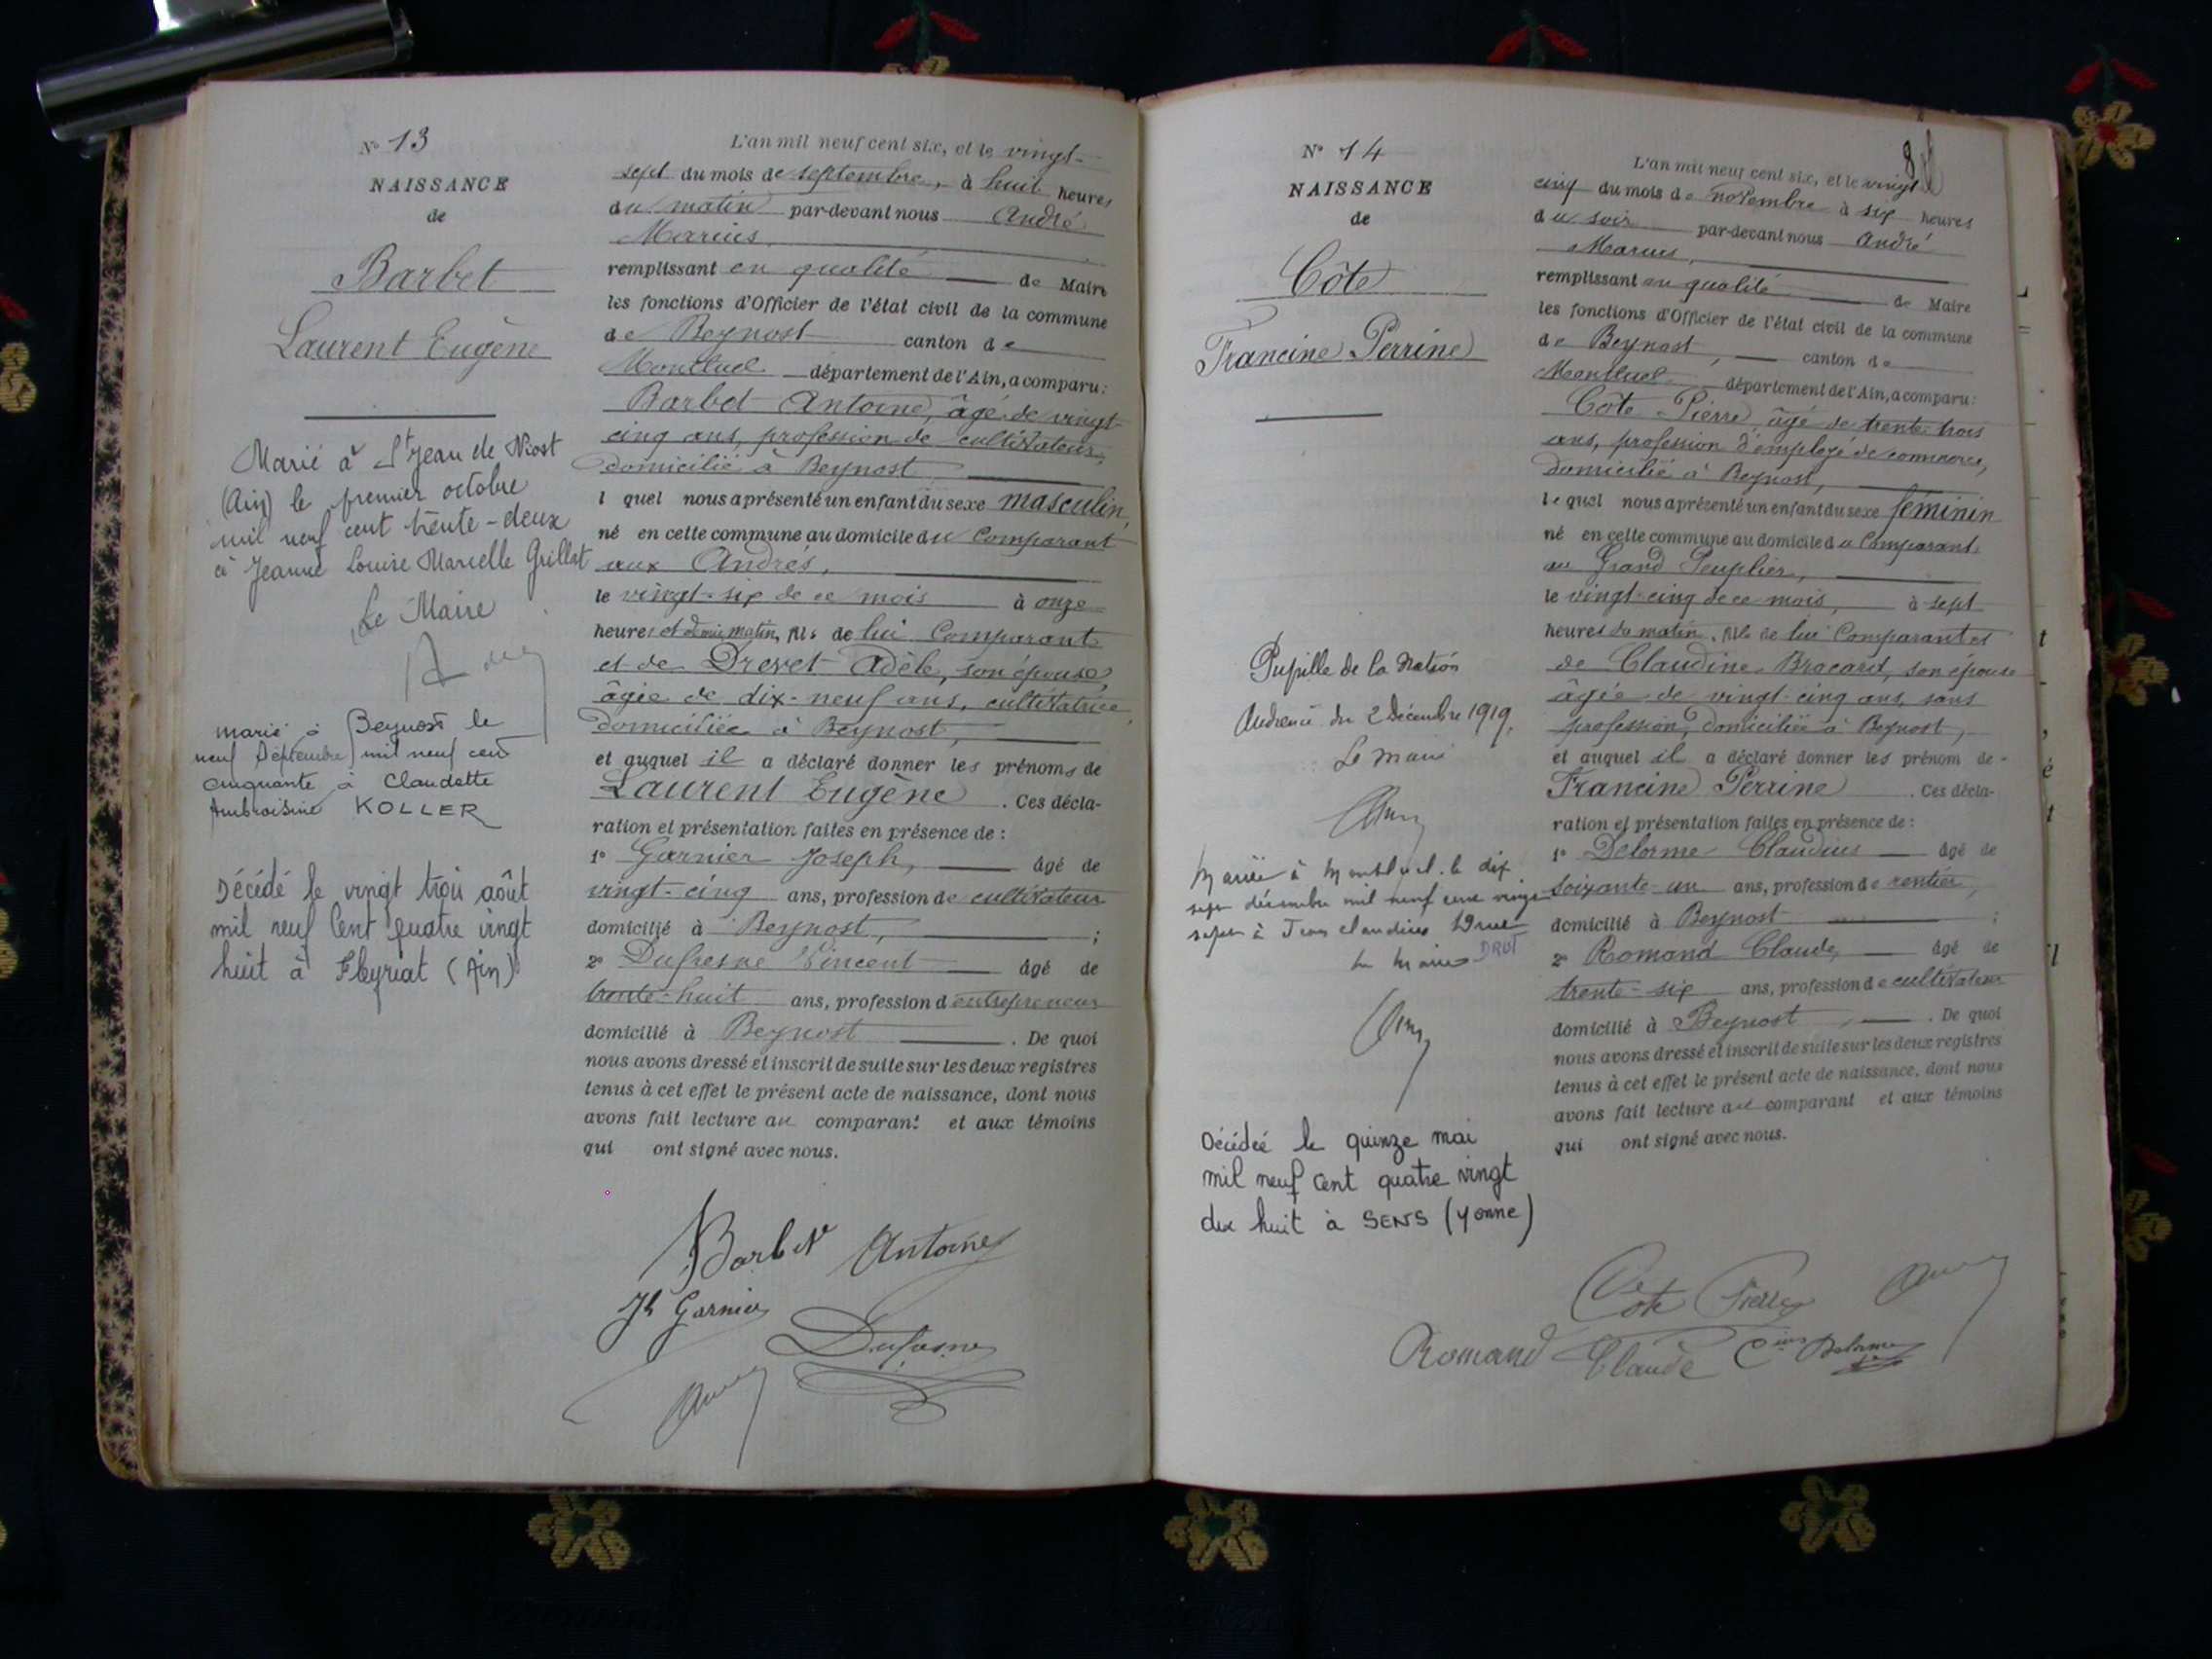 N° 13
NAISSANCE
de
Barbet
Laurent Eugène
Marié à St Jean de Niost
(Ain) le premier octobre
mil neuf cent trente-deux
à Jeanne Louise Marcelle Grillat
Le Maire
marié à Beynost le
neuf Septembre mil neuf cent
cinquante à Claudette
Ambroisine KOLLER
Décédé le vingt trois août
mil neuf Cent quatre vingt
huit à Fleyriat (Ain)
L'an mil neuf cent six, et le vingt-
sept du mois de septembre, à huit heures
du matin par-devant nous André
Marius,
remplissant en qualité de Maire
les fonctions d'Officier de l'état civil de la commune
de Beynost canton de
Montluel département de l'Ain, a comparu:
Barbet Antoine, âgé de vingt-
cinq ans, profession de cultivateur,
domicilié à Beynost,
l quel nous a présenté un enfant du sexe masculin,
né en cette commune au domicile du Comparant
aux Andrés,
le vingt-six de ce mois à onze
heures et demie matin, fils de lui Comparant
et de Drevet Adèle, son épouse,
âgée de dix-neuf ans, cultivatrice,
domiciliée à Beynost,
et auquel il a déclaré donner les prénoms de
Laurent Eugène . Ces décla-
ration et présentation faites en présence de :
1° Garnier Joseph, âgé de
vingt-cinq ans, profession de cultivateur
domicilié à Beynost, ;
2° Dufresne Vincent âgé de
trente-huit ans, profession d entrepreneur
domicilié à Beynost . De quoi
nous avons dressé et inscrit de suite sur les deux registres
tenus à cet effet le présent acte de naissance, dont nous
avons fait lecture au comparant et aux témoins
qui ont signé avec nous.
Barbet Antoine
Jh Garnier
Dufresne
N° 14
NAISSANCE
de
Côte
Francine Perrine
Pupille de la Nation
Audience du 2 Décembre 1919.
Le Maire
Mariée à Montluel le dix
sept décembre mil neuf cent vingt
sept à Jean Claudius Drut
DRUT
Le Maire
Décédée le quinze mai
mil neuf cent quatre vingt
dix huit à SENS (Yonne)
8
L'an mil neuf cent six, et le vingt-
cinq du mois de novembre à six heures
du soir par-devant nous André
Marius,
remplissant en qualité de Maire
les fonctions d'Officier de l'état civil de la commune
de Beynost, canton de
Montluel département de l'Ain, a comparu:
Côte Pierre, âgé de trente-trois
ans, profession d'employé de commerce,
domicilié à Beynost,
le quel nous a présenté un enfant du sexe féminin
né en cette commune au domicile du Comparant
au Grand Peuplier,
le vingt-cinq de ce mois, à sept
heures du matin, fille de lui Comparant et
de Claudine Brocard, son épouse
âgée de vingt-cinq ans, sans
profession, domiciliée à Beynost,
et auquel il a déclaré donner les prénom de
Francine Perrine . Ces décla-
ration et présentation faites en présence de :
1° Delorme Claudius âgé de
soixante-un ans, profession de rentier,
domicilié à Beynost ;
2° Romand Claude, âgé de
trente-six ans, profession de cultivateur
domicilié à Beynost, . De quoi
nous avons dressé et inscrit de suite sur les deux registres
tenus à cet effet le présent acte de naissance, dont nous
avons fait lecture au comparant et aux témoins
qui ont signé avec nous.
Cote Pierre
Romand Claude Cius Delorme